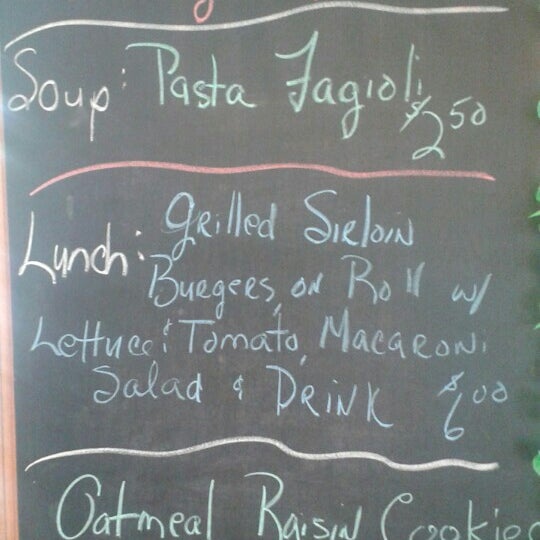 Soup: Pasta Fagioli
$2.50
Lunch: Grilled Sirloin
Burgers, on Roll w/
Lettuce & Tomato, Macaroni
Salad & Drink $6.00
Oatmeal Raisin Cookies